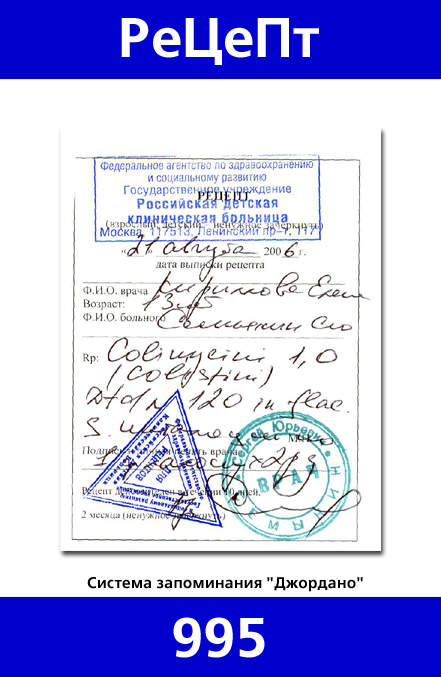 РеЦеПт
Федеральное агентство по здравоохранению
и социальному развитию
Государственное учреждение
РЕЦЕПТ
Российская детская
клиническая больница
(взрослый, детский - ненужное зачеркнуть)
Москва, 117513, Ленинский пр-т, 117
«21» августа 2006 г.
дата выписки рецепта
Ф.И.О. врача Кириллова Елена
Возраст: 13
Ф.И.О. больного
Rp: Colimycini 1,0
(Colistini)
Dtd N 120 in flac.
S.
Подпись врача
Рецепт действителен в течении 10 дней,
2 месяца (ненужное зачеркнуть)
Сергей Юрьевич
ВРАЧ
Система запоминания "Джордано"
995